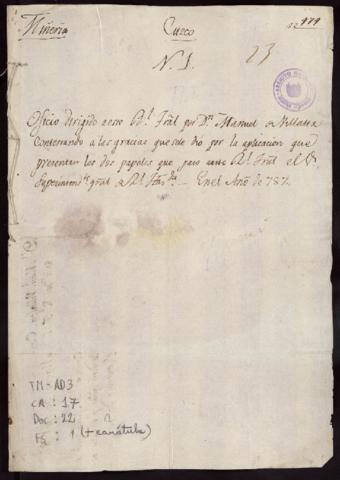 Minería
Cuzco
179
N. 1.
23
Oficio dirigido a este Rl. Tral por Dn Manuel de Villalta
Contextando a las gracias que se le dio por la aplicacion que
presentan los dos papeles que paso a este Rl. Tral el Sr.
Superintendte gral de Rl. Hda _ En el Año de 787.
TM-AD3
CA : 17
Doc : 22
Fs : 1 (+ carátula)